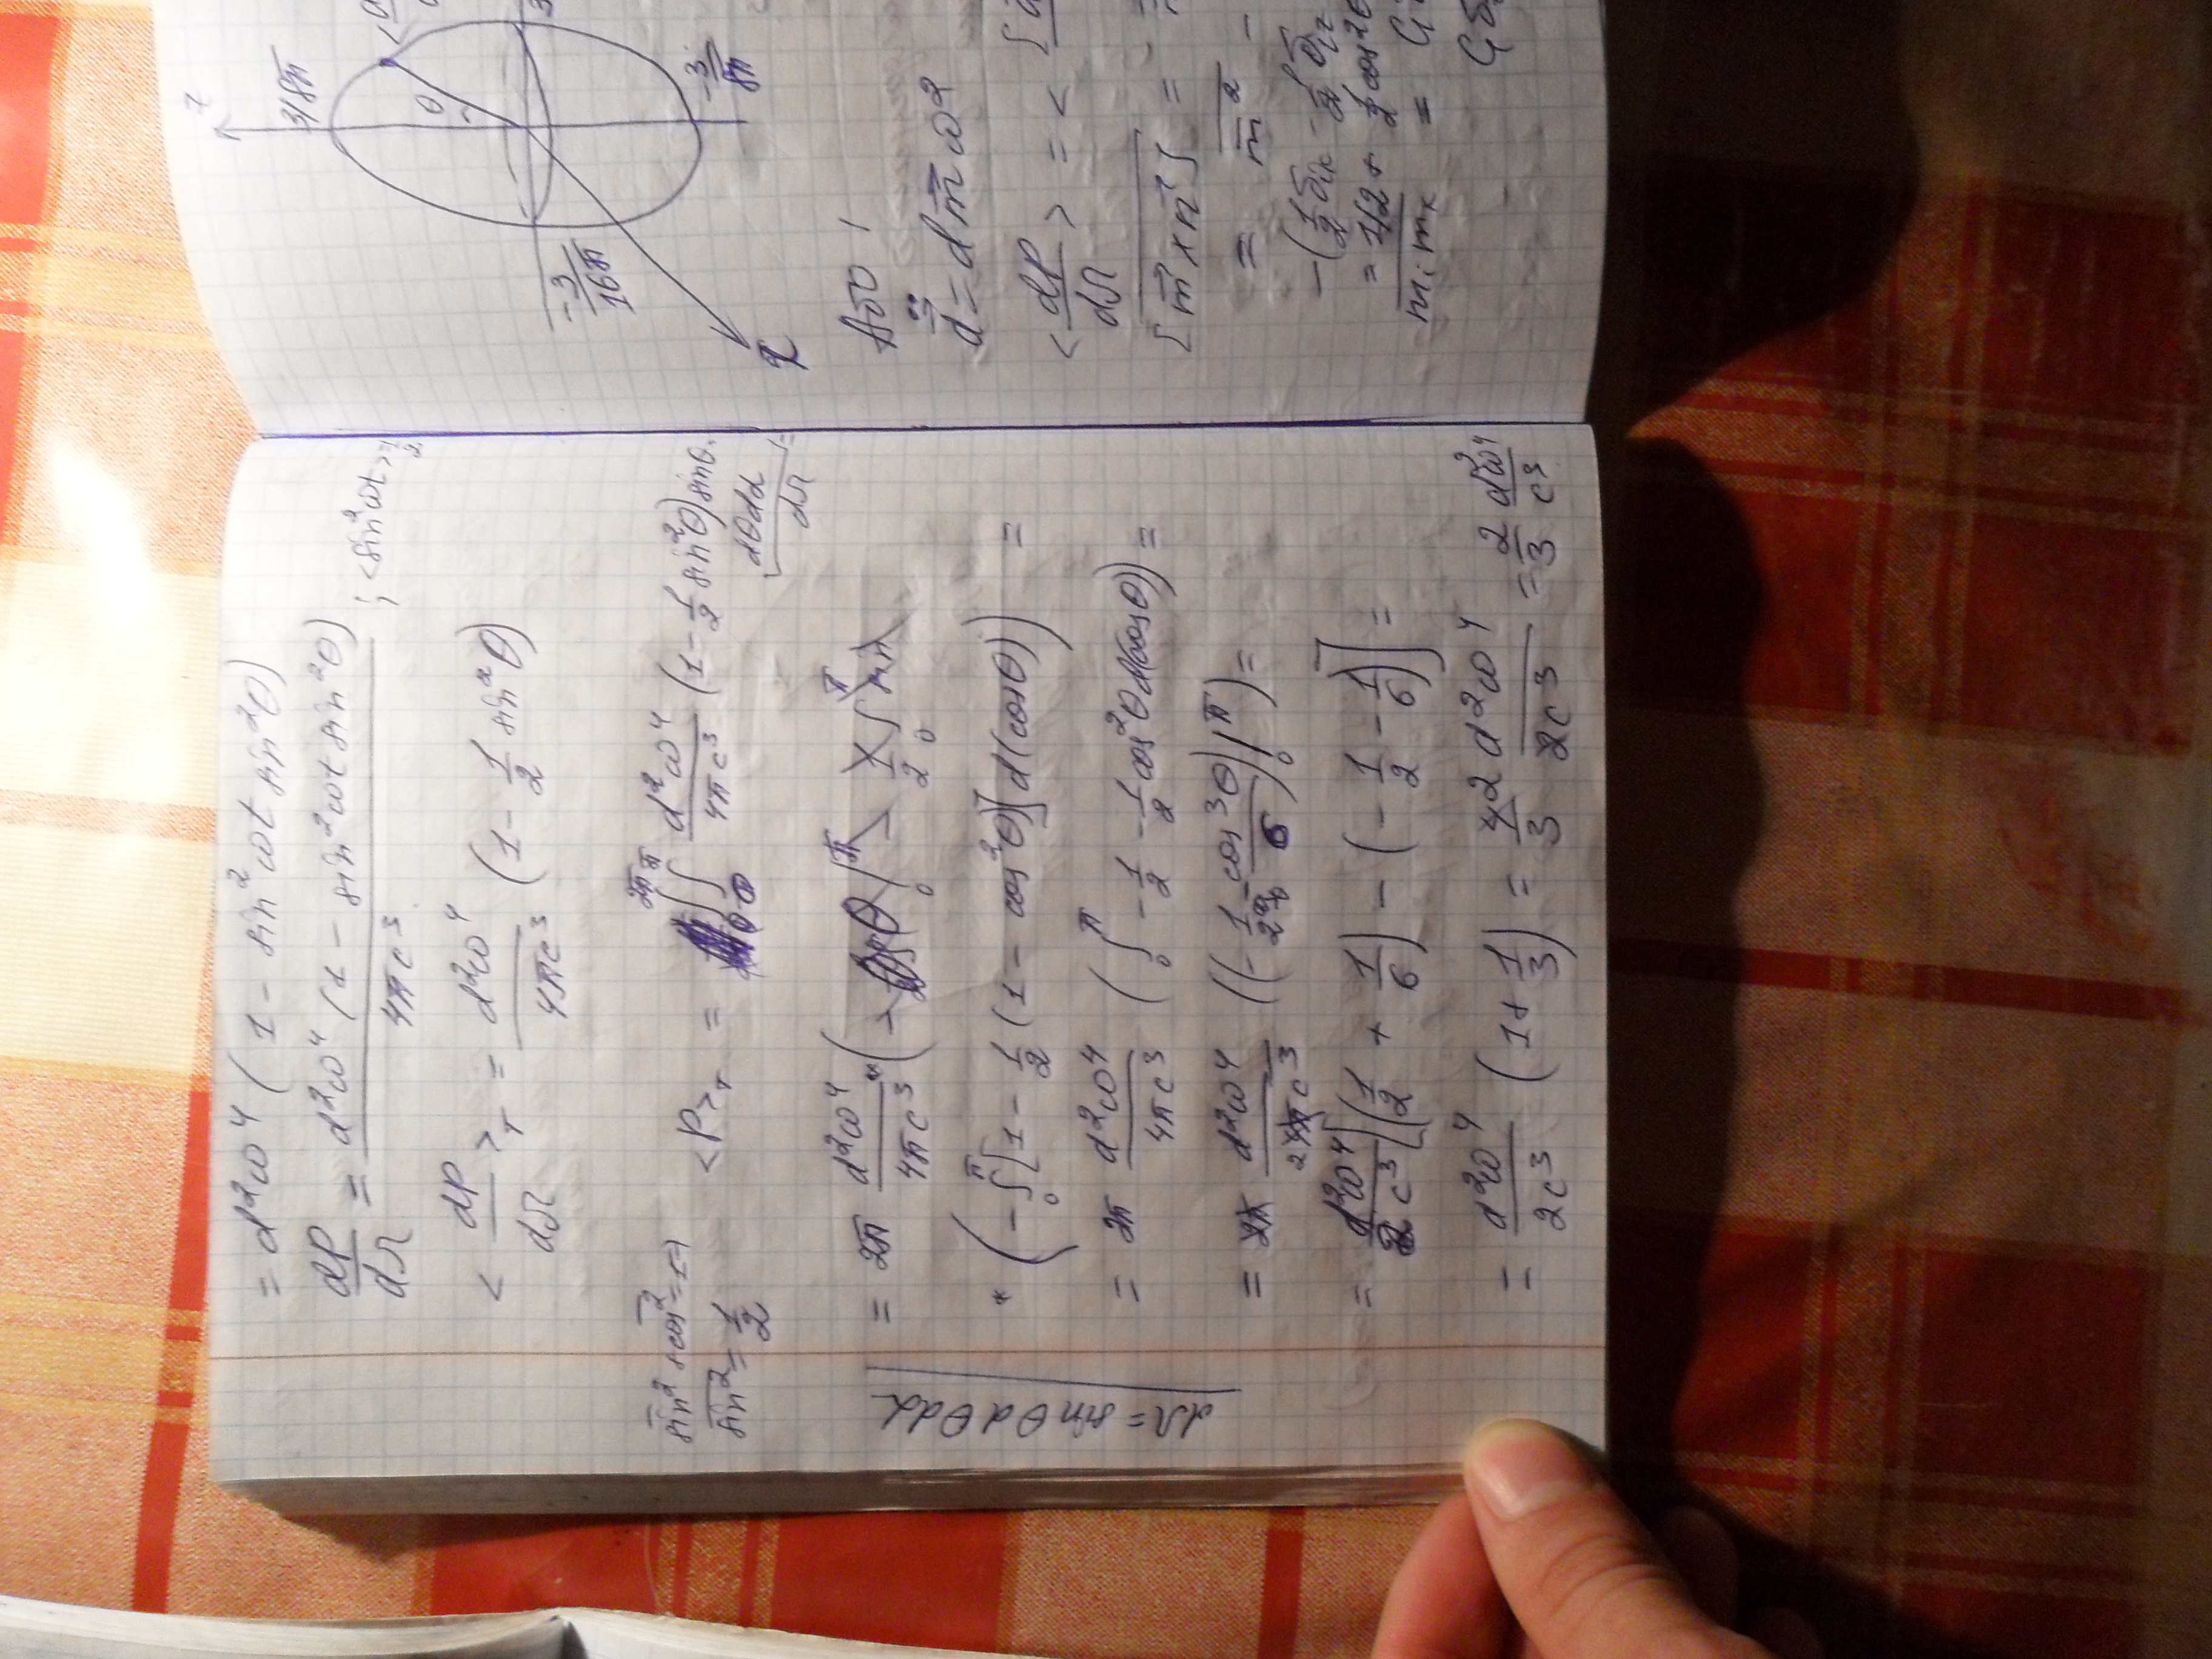 = d²ω⁴ (1 - sin²ωt sin²θ)
dP/dΩ = d²ω⁴(1 - sin²ωt sin²θ)/4πc³ ; <sin²ωt> = 1/2
<dP/dΩ>_T = d²ω⁴/4πc³ (1 - 1/2 sin²θ)
sin² + cos² = 1 =>
sin² = 1/2
<P>_T = ∫₀^2π ∫₀^π d²ω⁴/4πc³ (1 - 1/2 sin²θ) sinθ·
dθdα = dΩ
= 2π d²ω⁴/4πc³ *
dΩ = sinθ dθ dα
* (-∫₀^π [1 - 1/2 (1 - cos²θ)] d(cosθ)) =
= 2π d²ω⁴/4πc³ (∫₀^π -1/2 - 1/2 cos²θ d(cosθ)) =
= 2π d²ω⁴/24πc³ ((-1/2 - cos³θ/6)|₀^π) =
= d²ω⁴/2c³ [(1/2 + 1/6) - (-1/2 - 1/6)] =
= d²ω⁴/2c³ (1 + 1/3) = 42/3 d²ω⁴/2c³ = 2/3 d²ω⁴/c³
z
3/8π
θ
3/16π
3/8π
x
Або!
d̈ = d m ω²
<dP/dΩ> = <
[m × n] =
= m²
- (1/2 δik - 1/2 δiz
= 1/2 + 1/2 cos2
mi mk =